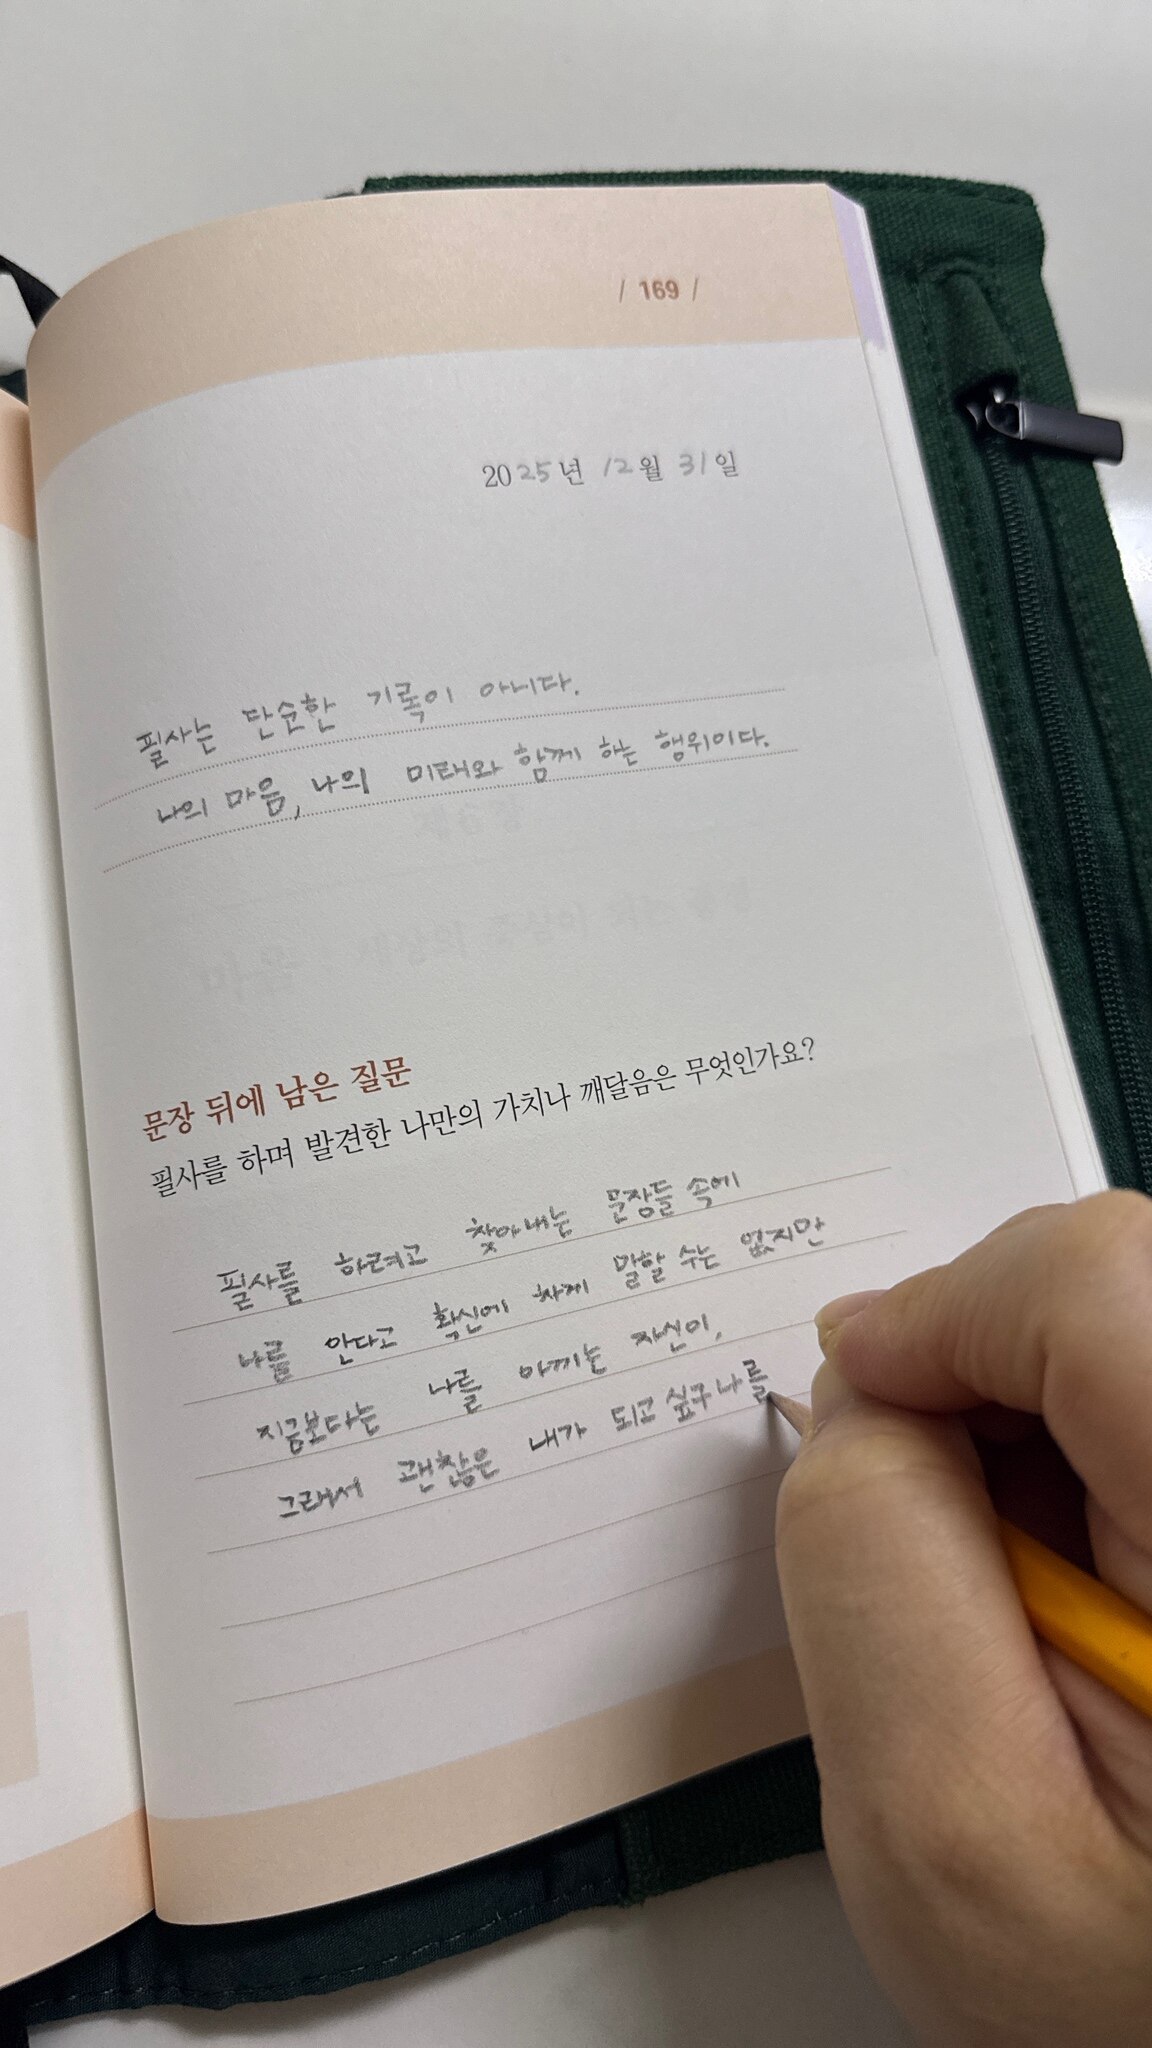 / 169 /
2025년 12월 31일
필사는 단순한 기록이 아니다.
나의 마음, 나의 미래와 함께 하는 행위이다.
문장 뒤에 남은 질문
필사를 하며 발견한 나만의 가치나 깨달음은 무엇인가요?
필사를 하려고 찾아내는 문장들 속에
나를 안다고 확신에 차게 말할 수는 없지만
지금보다는 나를 아끼는 자신이,
그래서 괜찮은 내가 되고 싶구나를